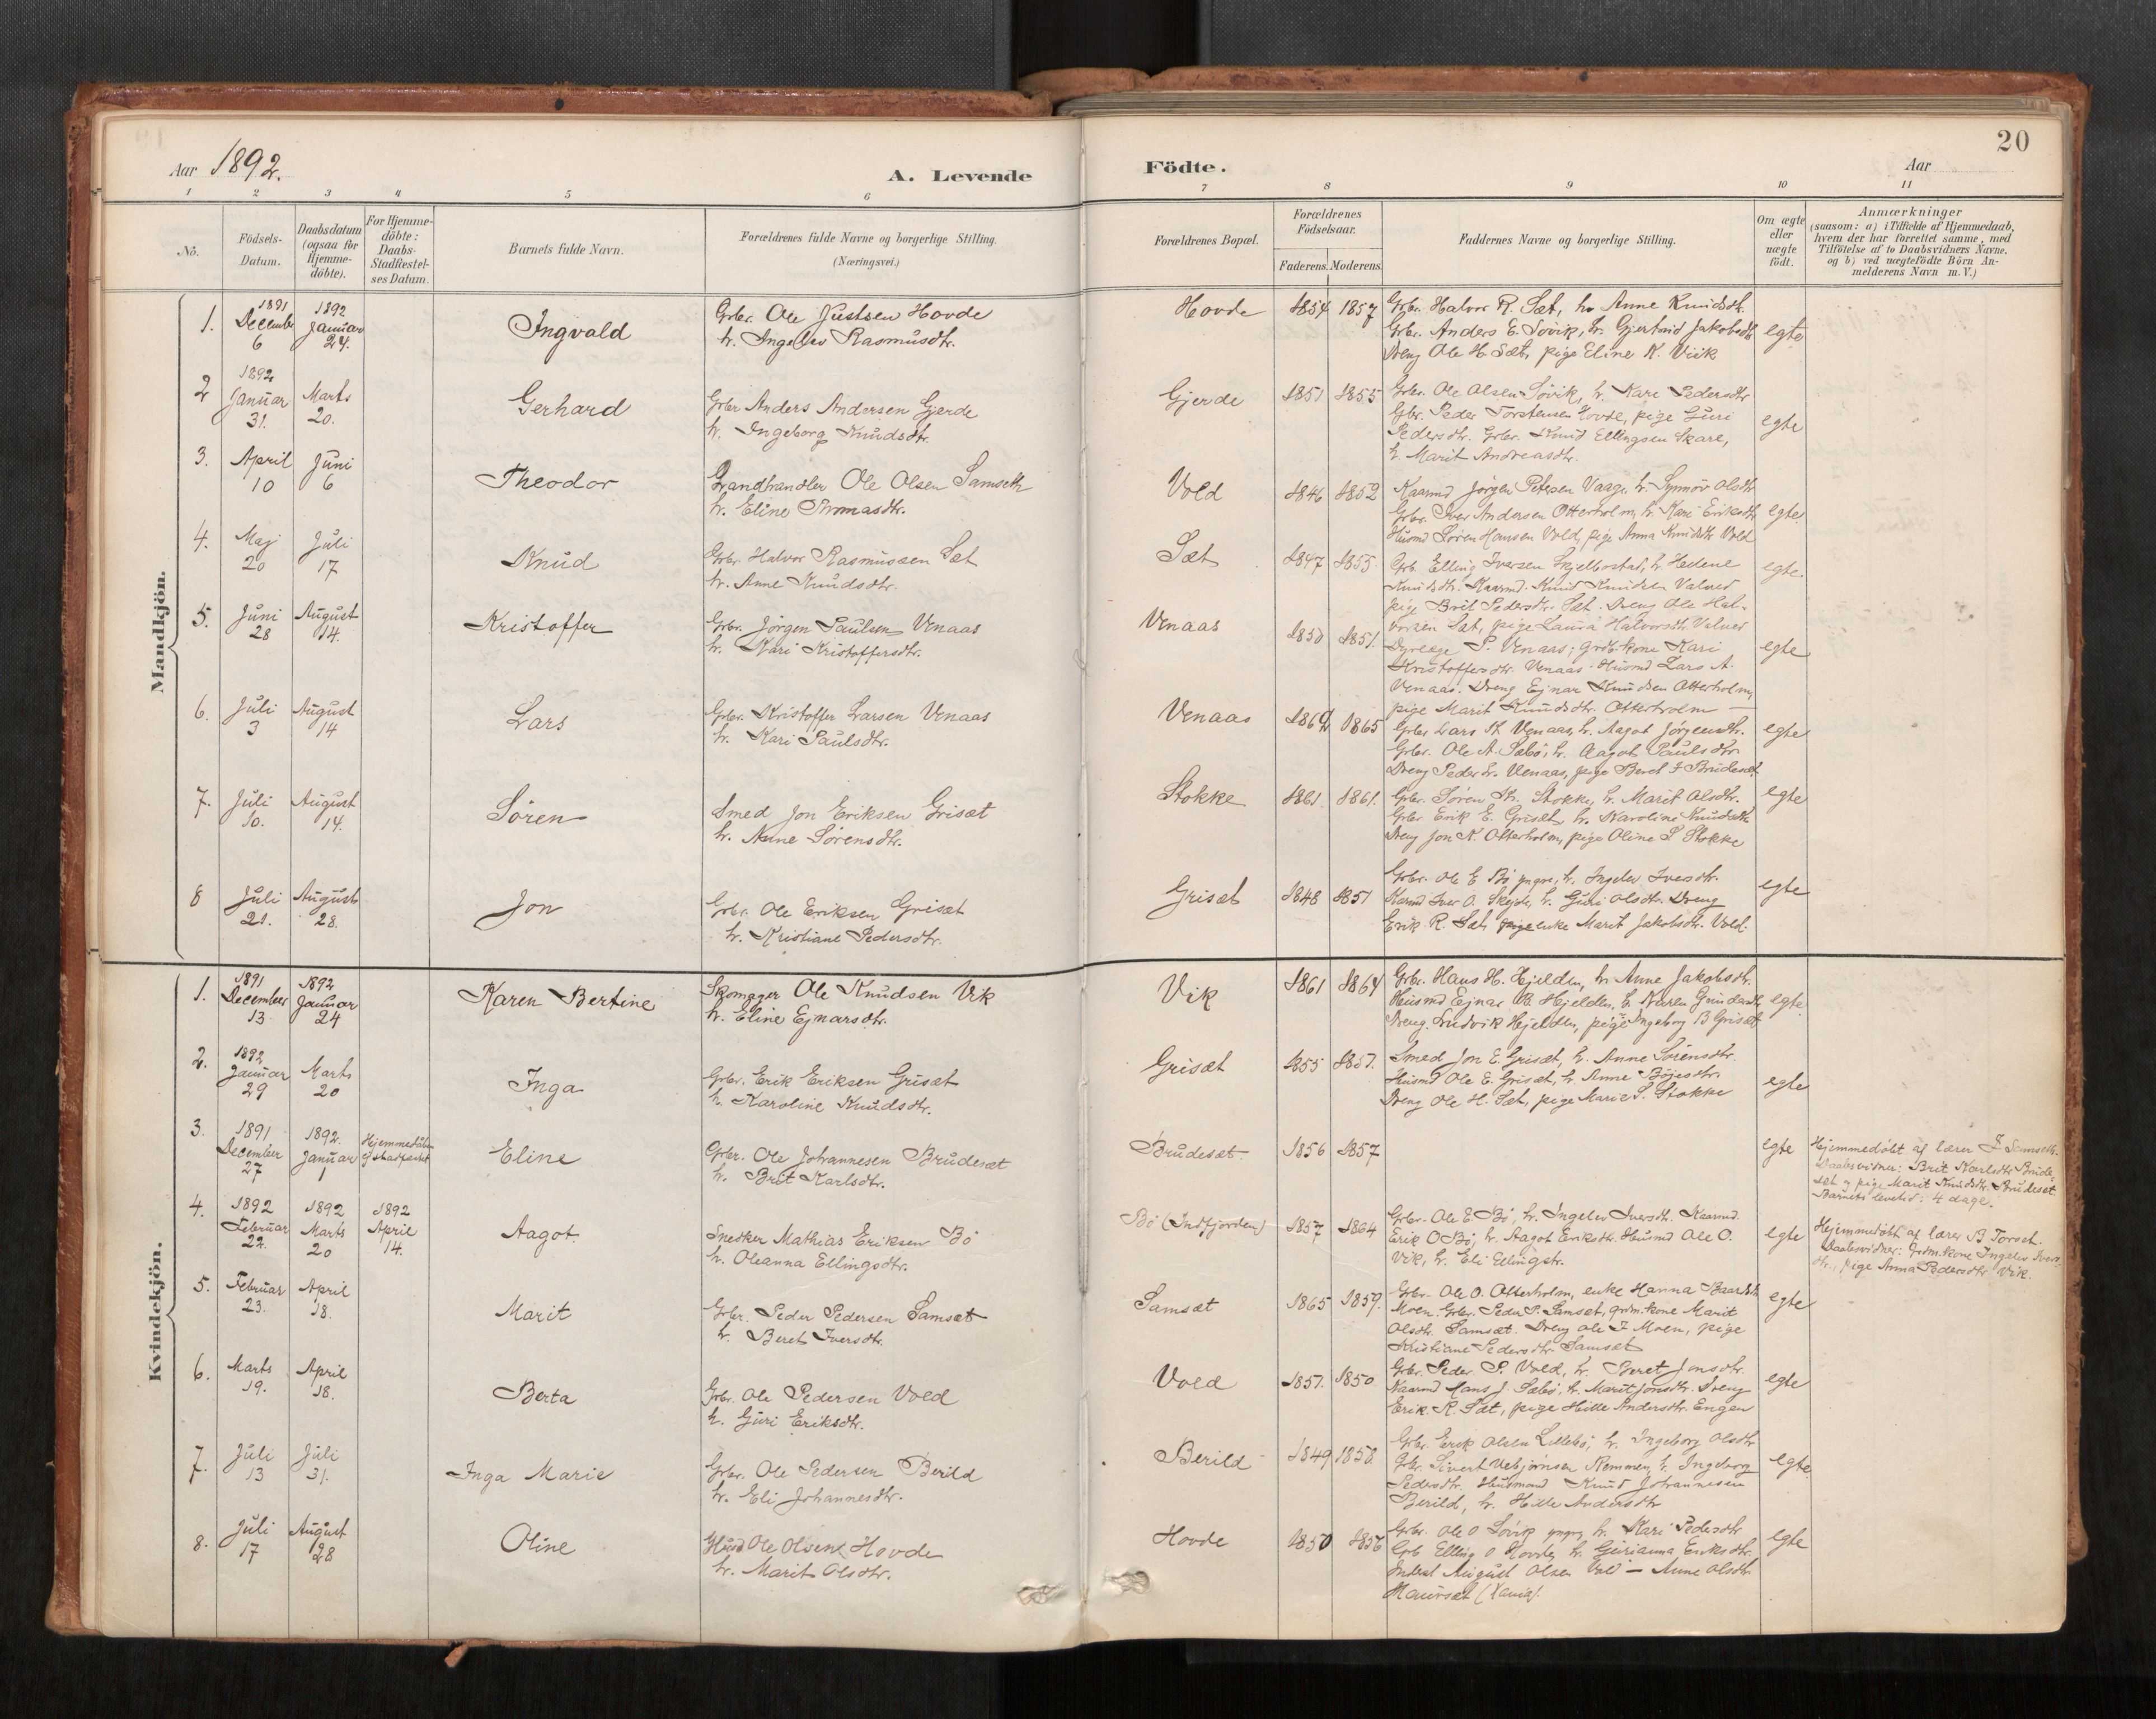 20
Aar 1892.
A. Levende Födte.
Aar
1 2 3 4 5 6 7 8 9 10 11
No.
Födsels-
Datum.
Daabsdatum
(ogsaa for
Hjemme-
döbte).
For Hjemme-
döbte:
Daabs-
Stadfæstel-
ses Datum.
Barnets fulde Navn.
Forældrenes fulde Navne og borgerlige Stilling.
(Næringsvei.)
Forældrenes Bopæl.
Forældrenes
Födselsaar.
Faderens. Moderens.
Faddernes Navne og borgerlige Stilling.
Om ægte
eller
uægte
födt.
Anmærkninger
(saasom: a) i Tilfælde af Hjemmedaab,
hvem der har forrettet samme, med
Tilföielse af to Daabsvidners Navne,
og b) ved uægtefödte Börn An-
melderens Navn m. V.)
Mandkjön.
1. 1891 December 6 1892 Januar 24. Ingvald
Grbr. Ole Justsen Hovde
h. Ingelev Rasmusdtr.
Hovde 1854 1857
Grbr. Halvor R. Sæt, h. Anne Knudsdtr.
Grbr. Anders E. Søvik, h. Gjertrud Jakobsdtr
Dreng Ole H. Sæt, pige Eline K. Viik
egte
2 1892 Januar 31. Marts 20. Gerhard
Grbr Anders Andersen Gjerde
h. Ingeborg Knudsdtr.
Gjerde 1851 1855
Grbr. Ole Olsen Søvik, h. Kari Pedersdtr
Gbr. Peder Torstensen Hovde, pige Guri
Pedersdtr. Grbr. Knud Ellingsen Skare,
h. Marit Andreasdtr.
egte
3. April 10 Juni 6 Theodor
Landhandler Ole Olsen Samseth
h. Eline Thomasdtr.
Vold 1846 1852
Kaarmd Jørgen Petersen Vaage, h. Synnøv Olsdtr
Grbr. Iver Andersen Otterholm, h. Kari Eriksdtr
Husmd Søren Hansen Vold, pige Anna Knudsdtr Vold
egte.
4. Maj 20 Juli 17 Knud
Grbr. Halvor Rasmussen Sæt
h. Anne Knudsdtr.
Sæt 1847 1855.
Grb. Elling Iversen Skjelbostad, h. Hellene
Knudsdtr. Kaarmd. Knud Knudsen
pige Brit Pedersdtr. Sæt. Dreng Ole Hal-
vorsen Sæt, pige Laura Halvorsdtr.
egte.
5. Juni 28 August 14. Kristoffer
Grbr. Jørgen Paulsen Venaas
h. Kari Kristoffersdtr.
Venaas 1850 1851.
Dyrlæge P. Venaas; grdb.kone Kari
Kristoffersdtr. Venaas. Husmd Lars A.
Venaas. Dreng Ejnar Knudsen Otterholm,
pige Marit Knudsdtr. Otterholm
egte
6. Juli 3 August 14 Lars
Grbr. Kristoffer Larsen Venaas
h. Kari Paulsdtr.
Venaas 1862 1865
Grbr Lars K Venaas, h. Aagot Jørgensdtr.
Grbr. Ole A. Sæbø, h. Aagot Paulsdtr
Dreng Peder Kr. Venaas, pige Beret J Brudeset
egte
7. Juli 10. August 14. Søren
Smed Jon Eriksen Grisæt
h. Anne Sørensdtr.
Stokke 1861. 1861.
Grbr. Søren Kr. Stokke, h. Marit Olsdtr.
Grbr. Erik E. Grisæt, h. Karoline Knudsdtr
Dreng Jon K. Otterholm, pige Oline S. Stokke
egte
8 Juli 21. August 28. Jon
Grbr. Ole Eriksen Grisæt
h. Kristiane Pedersdtr.
Grisæt 1848 1851
Grbr. Ole E Bø yngre, h. Ingelev Iversdtr.
Kaarmd Iver O. Skejde, h. Guri Olsdtr. Dreng
Erik R. Sæt, enke Marit Jakobsdtr. Vold.
egte
Kvindekjön.
1. 1891 December 13 1892 Januar 24 Karen Bertine
Skomager Ole Knudsen Vik
h. Eline Ejnarsdtr.
Vik 1861 1864
Grbr. Hans H. Hjelden, h. Anne Jakobsdtr.
Husmd Ejnar B. Hjelden, h. Karen
Dreng Ludvik Hjelden, pige Ingeborg B Grisæt
egte
2. 1892 Januar 29 Marts 20 Inga
Grbr. Erik Eriksen Grisæt
h. Karoline Knudsdtr.
Grisæt 1855 1857.
Smed Jon E. Grisæt, h. Anne Sørensdtr.
Husmd Ole E. Grisæt, h. Anne Bøjesdtr.
Dreng Ole H. Sæt, pige Marie S. Stokke
egte
3. 1891 December 27 1892. Januar 1 Hjemmedåben ej stadfæstet Eline
Grbr. Ole Johannesen Brudesæt
h. Brit Karlsdtr.
Brudesæt 1856 1857
egte
Hjemmedøbt af lærer J Samseth.
Daabsvidner: Brit Karlsdtr Brude-
sæt og pige Marit Knudsdtr. Brudeset.
Barnets levetid: 4 dage.
4. 1892 Februar 22. 1892 Marts 20 1892 April 14. Aagot.
Snedker Mathias Eriksen Bø
h. Oleanna Ellingsdtr.
Bø (Indfjorden) 1857 1864
Grbr. Ole E. Bø, h. Ingelev Iversdtr. Kaarmd.
Erik O Bø, h. Aagot Eriksdtr. Husmd Ole O.
Vik, h. Eli Ellingsdtr.
egte
Hjemmedøbt af lærer B Torset.
Daabsvidner: Grdm.kone Ingelev Ivers-
dtr., pige Anna Pedersdtr Vik.
5. Februar 23. April 18. Marit
Grbr. Peder Pedersen Samsæt
h. Beret Iversdtr.
Samsæt 1865 1859.
Grbr. Ole O. Otterholm, enke Hanna Baardsdtr
Moen. Grbr. Peder P. Samsæt, grdm.kone Marit
Olsdtr. Samsæt. Dreng Ole J Moen, pige
Kristiane Pedersdtr Samsæt
egte
6. Marts 19. April 18. Berta
Grbr. Ole Pedersen Vold
h. Guri Eriksdtr.
Vold 1851. 1850
Grbr. Peder P. Vold, h. Beret Jonsdtr.
Kaarmd Hans J. Sæbø, h. Marit Jonsdtr. Dreng
Erik R. Sæt, pige Hille Andersdtr. Engen
egte
7. Juli 13 Juli 31. Inga Marie
Grbr. Ole Pedersen Berild
h. Eli Johannesdtr.
Berild 1849 1858
Grbr. Erik Olsen Lillebø, h. Ingeborg Olsdtr
Grbr. Sivert Vebjørnsen Remmen, h. Ingeborg
Pedersdtr. Husmand Knud Johannesen
Berild, h. Hille Andersdtr
egte
8. Juli 17 August 28 Oline
Husmd Ole Olsen Hovde
h. Marit Olsdtr.
Hovde 1850 1856
Grbr. Ole O Søvik yngre, h. Kari Pedersdtr
Grb Elling O Hovde, h. Gurianna Eriksdtr.
August Olsen Vold — Anne Olsdtr